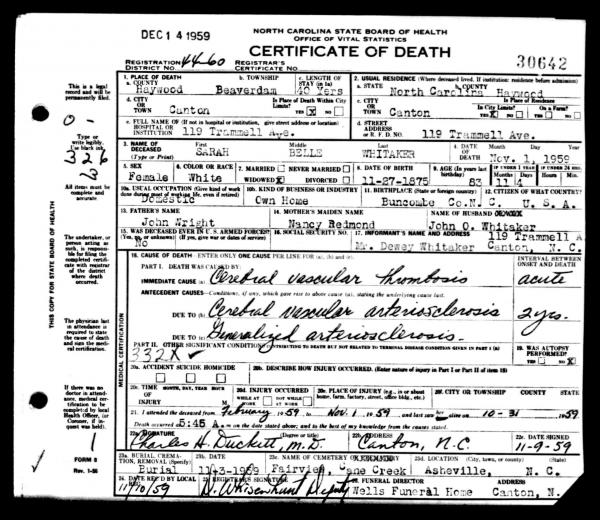 DEC 14 1959
NORTH CAROLINA STATE BOARD OF HEALTH
OFFICE OF VITAL STATISTICS
CERTIFICATE OF DEATH
REGISTRATION DISTRICT NO. 44-60 REGISTRAR'S CERTIFICATE NO. 30642
This is a legal record and will be permanently filed.
Type or write legibly. Use black ink.
All items must be complete and accurate.
The undertaker, or person acting as such, is responsible for filing the completed certificate with registrar of the district where death occurred.
The physician last in attendance is required to state the cause of death and sign the medical certification.
If there was no doctor in attendance, medical certification to be completed by local Health Officer, (or Coroner, if inquest was held.)
FORM 8
Rev. 1-56
THIS COPY FOR STATE BOARD OF HEALTH
0-
326
3
1
1. PLACE OF DEATH
a. COUNTY Haywood
b. TOWNSHIP Beaverdam
c. LENGTH OF STAY (in 1a) 40 Yers
2. USUAL RESIDENCE (Where deceased lived. If institution: residence before admission)
a. STATE North Carolina b. COUNTY Haywood
d. CITY OR TOWN Canton
Is Place of Death Within City Limits? YES X NO
c. CITY OR TOWN Canton
Is Place of Residence In City Limits? YES X NO
On a Farm? YES NO
e. FULL NAME OF HOSPITAL OR INSTITUTION (If not in hospital or institution, give street address or location) 119 Trammell Ave.
d. STREET ADDRESS OR R. F. D. NO. 119 Trammell Ave.
3. NAME OF DECEASED (Type or Print)
First SARAH Middle BELLE Last WHITAKER
4. DATE OF DEATH Month Day Year Nov. 1, 1959
5. SEX Female
6. COLOR OR RACE White
7. MARRIED NEVER MARRIED WIDOWED X DIVORCED
8. DATE OF BIRTH 11-27-1875
9. AGE (In years last birthday) 83 11 4
10a. USUAL OCCUPATION (Give kind of work done during most of working life, even if retired) Domestic
10b. KIND OF BUSINESS OR INDUSTRY Own Home
11. BIRTHPLACE (State or foreign country) Buncombe Co.N.C.
12. CITIZEN OF WHAT COUNTRY? U. S. A.
13. FATHER'S NAME John Wright
14. MOTHER'S MAIDEN NAME Nancy Redmond
NAME OF HUSBAND OR WIFE John O. Whitaker
15. WAS DECEASED EVER IN U. S. ARMED FORCES? (Yes, no, or unknown) (If yes, give war or dates of service) No
16. SOCIAL SECURITY NO.
17. INFORMANT'S NAME AND ADDRESS 119 Trammell A.
Mr. Dewey Whitaker Canton, N. C.
MEDICAL CERTIFICATION
18. CAUSE OF DEATH ENTER ONLY ONE CAUSE PER LINE FOR (a), (b) and (c).
INTERVAL BETWEEN ONSET AND DEATH
PART I. DEATH WAS CAUSED BY:
IMMEDIATE CAUSE (a) Cerebral vascular thrombosis acute
ANTECEDENT CAUSES- Conditions, if any, which gave rise to above cause (a), stating the underlying cause last.
DUE TO (b) Cerebral vascular arteriosclerosis 2 yrs.
DUE TO (c) Generalized arteriosclerosis.
PART II. OTHER SIGNIFICANT CONDITIONS CONTRIBUTING TO DEATH BUT NOT RELATED TO TERMINAL DISEASE CONDITION GIVEN IN PART I (a)
332X
19. WAS AUTOPSY PERFORMED? YES NO X
20a. ACCIDENT SUICIDE HOMICIDE
20b. DESCRIBE HOW INJURY OCCURRED. (Enter nature of injury in Part I or Part II of item 18)
20c. TIME OF INJURY MONTH, DAY, YEAR HOUR M
20d. INJURY OCCURRED WHILE AT WORK NOT WHILE AT WORK
20e. PLACE OF INJURY (e.g., in or about home, farm, factory, street, office bldg., etc.)
20f. CITY OR TOWNSHIP COUNTY STATE
21. I attended the deceased from February 1959 to Nov. 1 1959 and last saw her alive on 10-31 1959
Death occurred at 5:45 A. m. on the date stated above; and to the best of my knowledge from the causes stated.
22a. SIGNATURE (Degree or title) Charles H. Duckett, M.D.
22b. ADDRESS Canton, N.C.
22c. DATE SIGNED 11-9-59
23a. BURIAL, CREMATION, REMOVAL (Specify) Burial
23b. DATE 11-3-1959
23c. NAME OF CEMETERY Fairview, Cane Creek
23d. LOCATION (City, town, or county) (State) Asheville, N. C.
24. DATE REC'D BY LOCAL REG. 11/10/59
REGISTRAR'S SIGNATURE D. Whisenhunt Deputy
FUNERAL DIRECTOR Wells Funeral Home
ADDRESS Canton, N.